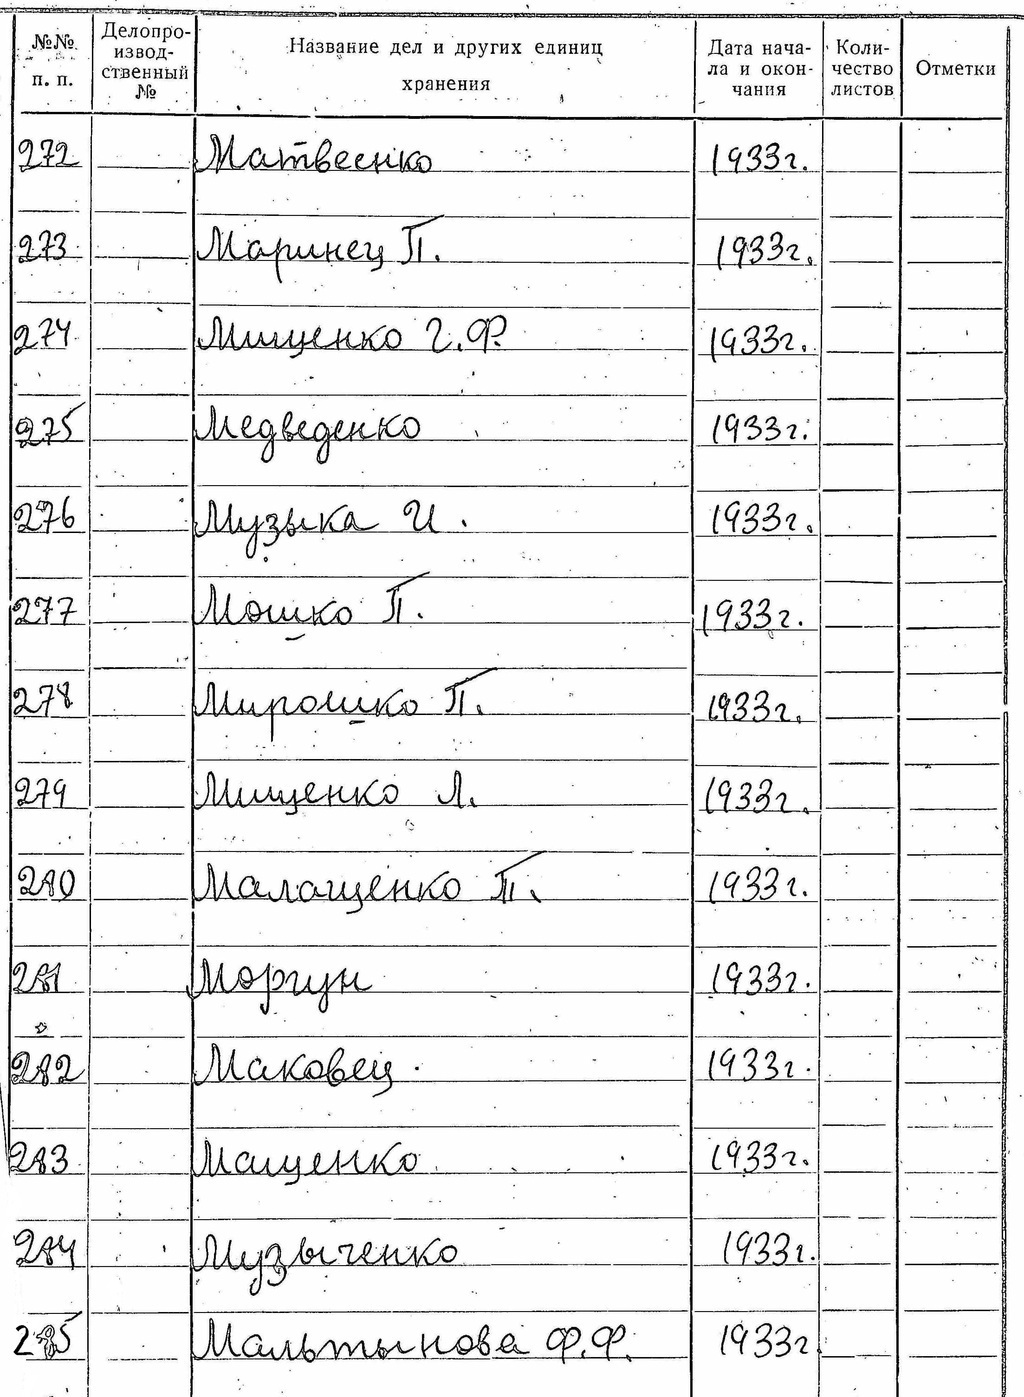 №№ п. п. Делопроизводственный № Название дел и других единиц хранения Дата начала и окончания Количество листов Отметки
272 Матвеенко 1933г.
273 Маринец П. 1933г.
274 Мищенко Г.Ф. 1933г.
275 Медведенко 1933г.
276 Музыка И. 1933г.
277 Мошко П. 1933г.
278 Мирошко П. 1933г.
279 Мищенко Л. 1933г.
280 Малащенко П. 1933г.
281 Моргун 1933г.
282 Маковец 1933г.
283 Мащенко 1933г.
284 Музыченко 1933г.
285 Мальтынова Ф.Ф. 1933г